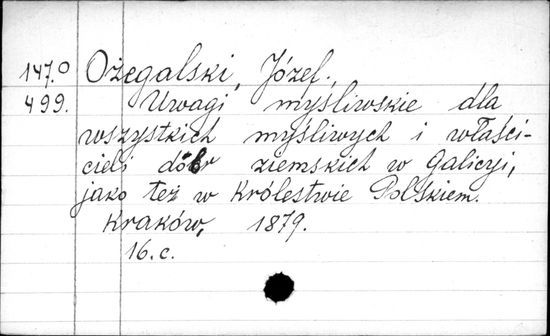 147.0 Ożegalski, Józef.
499. Uwagi myśliwskie dla
wszystkich myśliwych i właści-
cieli dóbr ziemskich w Galicyi,
jako też w Królestwie Polskiem.
Kraków, 1879.
16.c.